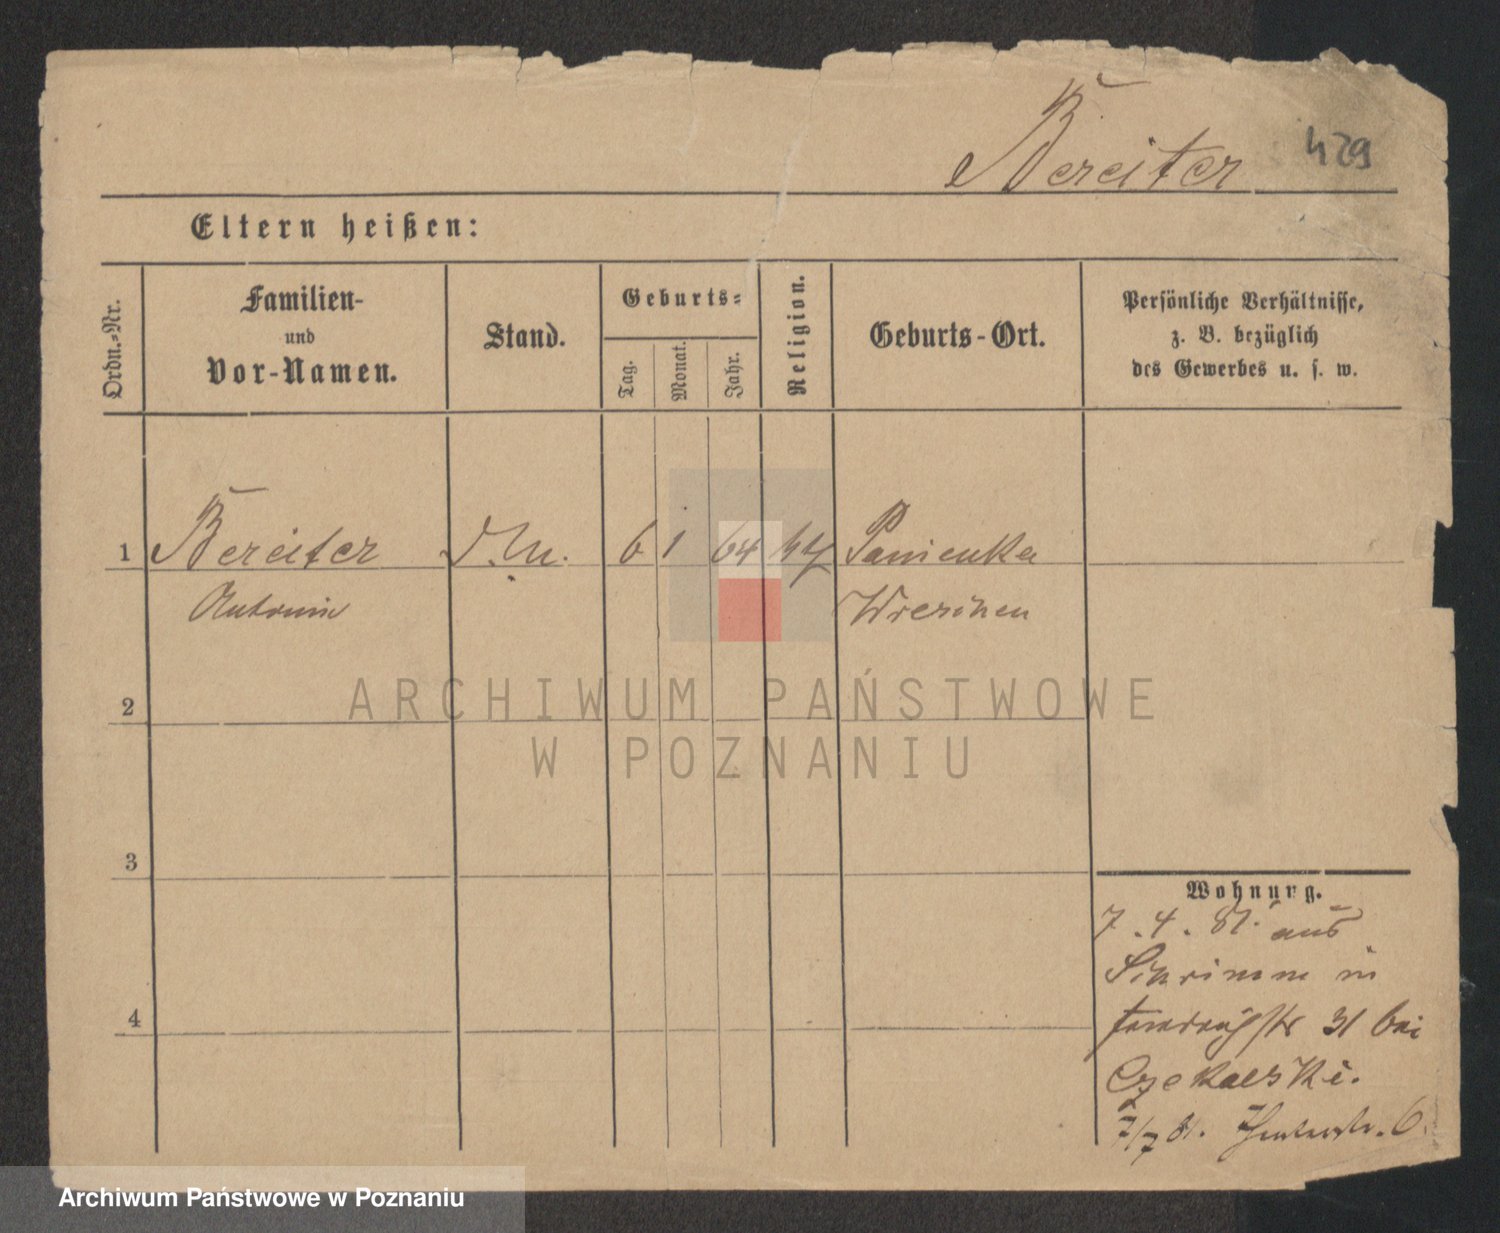 Bereiter 429
Eltern heißen:
Ordn.-Nr.
Familien-
und
Vor-Namen.
Stand.
Geburts-
Tag.
Monat.
Jahr.
Religion.
Geburts-Ort.
Persönliche Verhältnisse,
z. B. bezüglich
des Gewerbes u. s. w.
1 Bereiter D.M. 6 1 64 kth Panienka
Antonie Wreschen
2
ARCHIWUM PAŃSTWOWE
W POZNANIU
3
4
Wohnung.
7. 4. 81. aus
Schrimm in
31 bei
Czekalski.
7/7 81. 6.
Archiwum Państwowe w Poznaniu